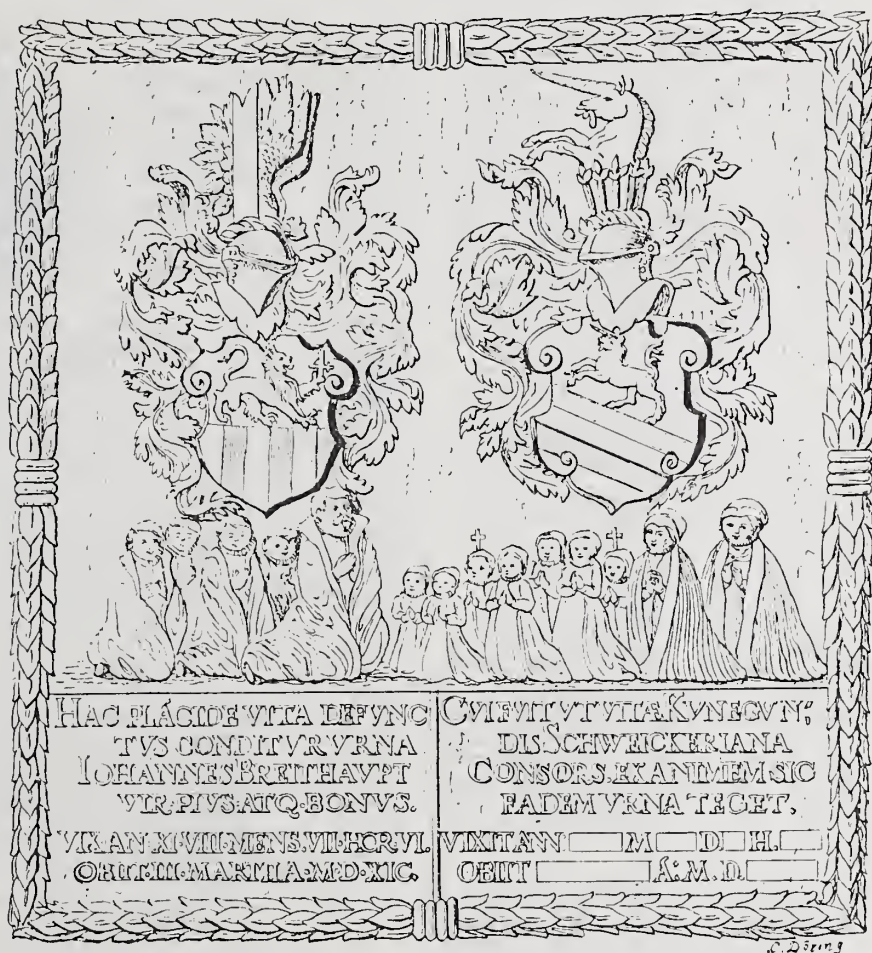 HAC PLACIDE VITA DEFVNC
TVS CONDITVR VRNA
IOHANNES BREITHAVPT
VIR·PIVS·ATQ·BONVS.
VIX·AN XLVIII·MENS·VII·HOR·VI.
OBIIT·III·MARTII·A·M·D·XIC.
CVI FVIT VT VITÆ KVNEGVN;
DIS SCHWEICKERIANA
CONSORS. EXANIMEM SIC
EADEM VRNA TEGET.
VIXIT ANN M D H.
OBIIT A: M. D.
C. Döring